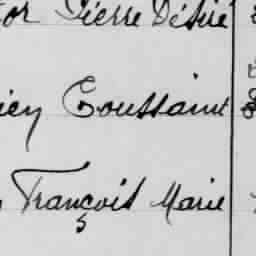 tor Pierre Désiré
ien Toussaint
François Marie